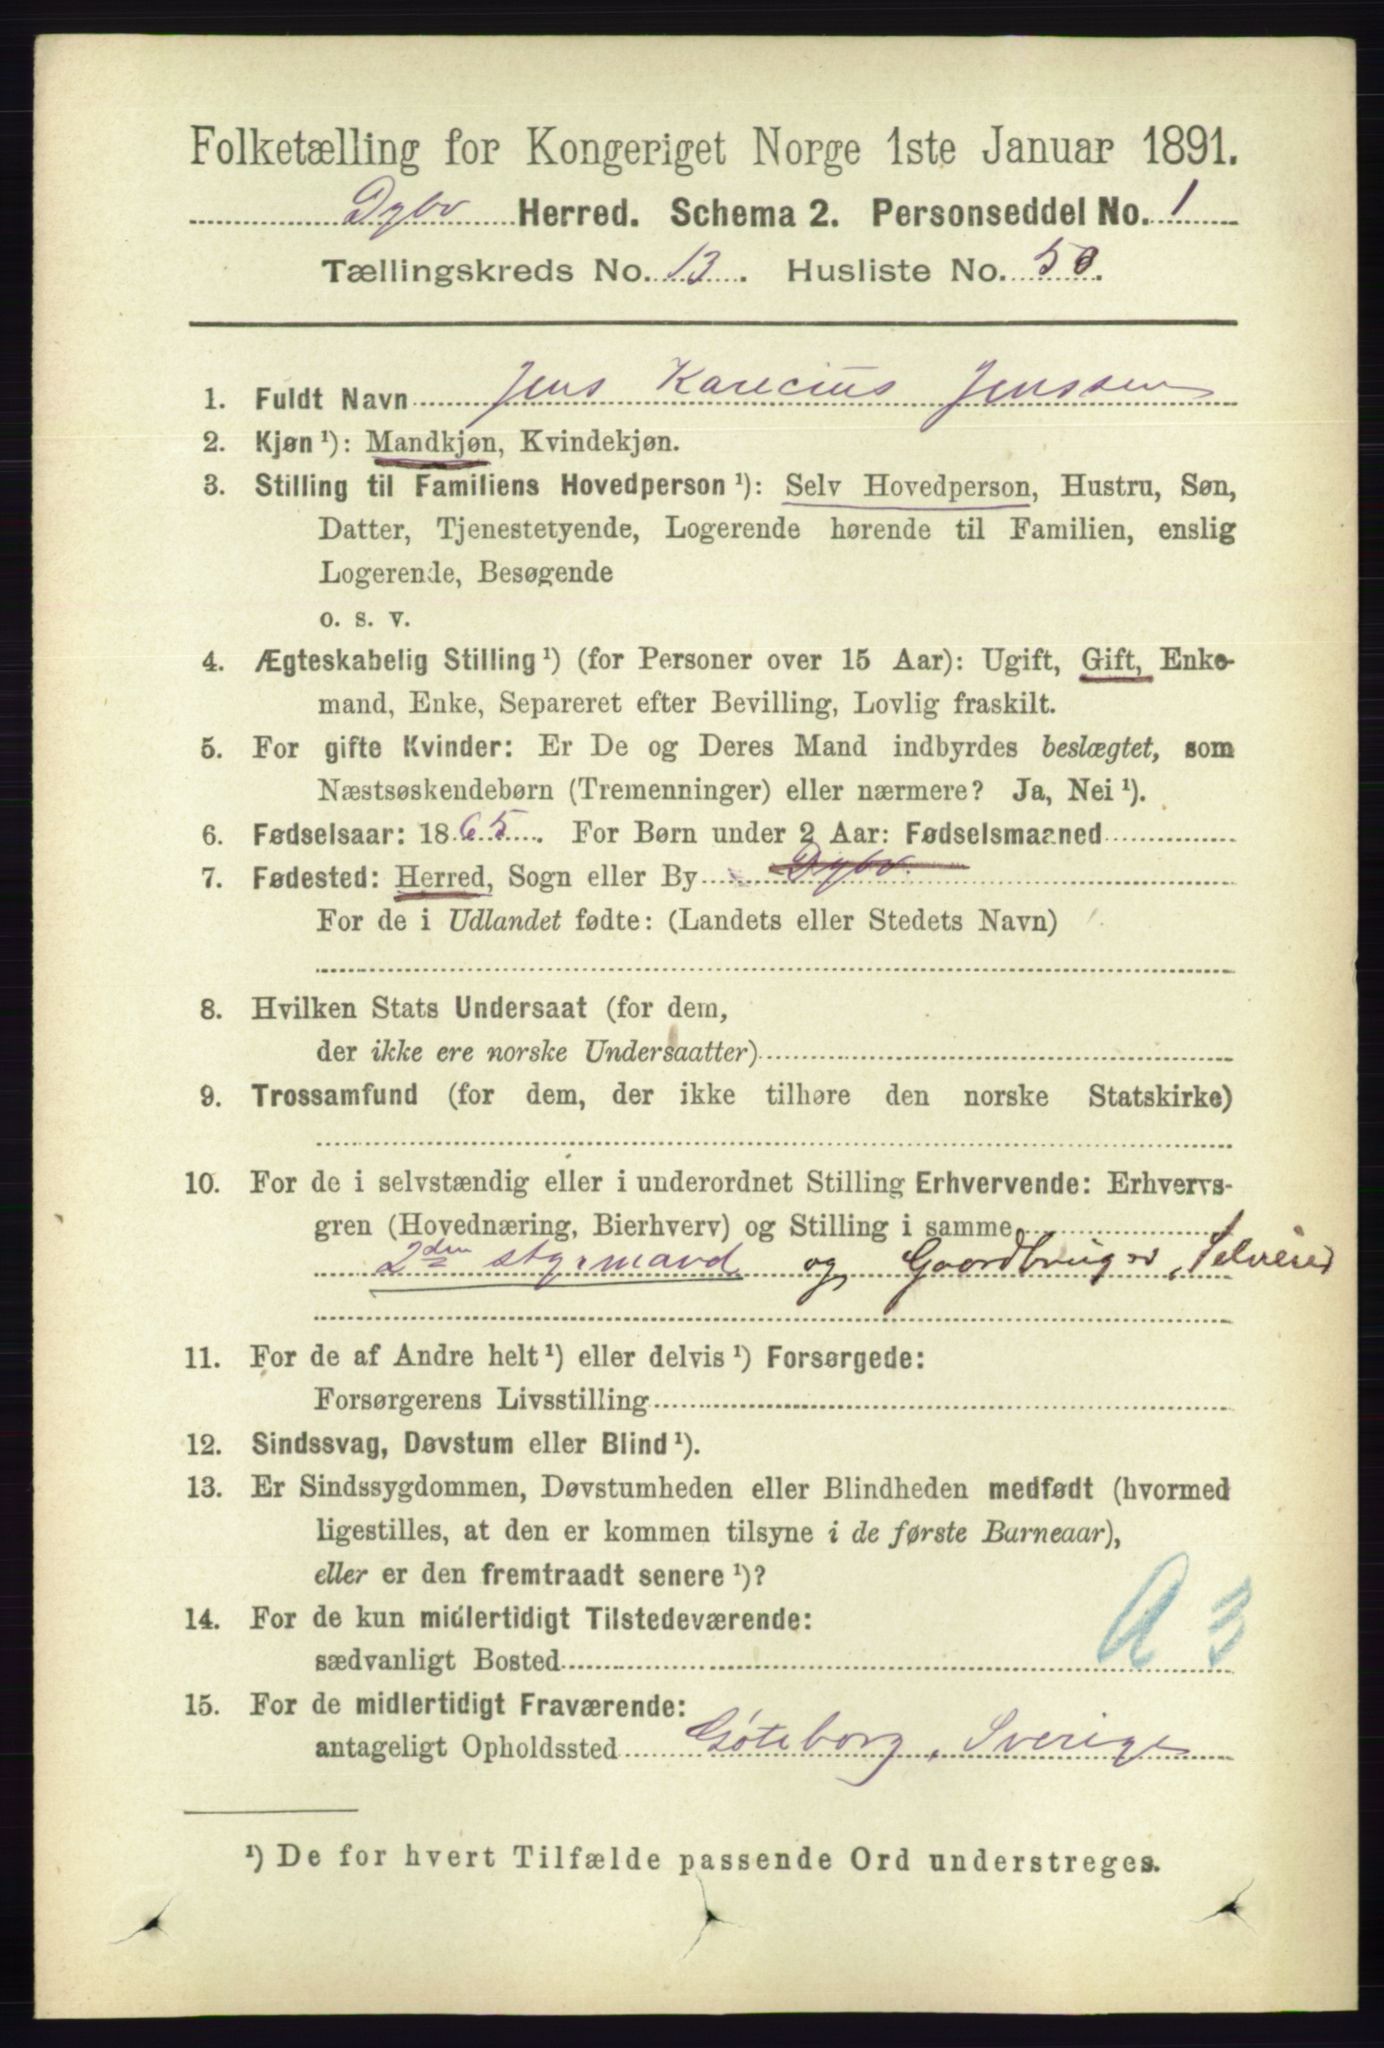 Folketælling for Kongeriget Norge 1ste Januar 1891.
Dybv Herred. Schema 2. Personseddel No. 1
Tællingskreds No. 13. Husliste No. 50.
1. Fuldt Navn Jens Karecius Jenssen
2. Kjøn ¹): Mandkjøn, Kvindekjøn.
3. Stilling til Familiens Hovedperson ¹): Selv Hovedperson, Hustru, Søn,
Datter, Tjenestetyende, Logerende hørende til Familien, enslig
Logerende, Besøgende
o. s. v.
4. Ægteskabelig Stilling ¹) (for Personer over 15 Aar): Ugift, Gift, Enke-
mand, Enke, Separeret efter Bevilling, Lovlig fraskilt.
5. For gifte Kvinder: Er De og Deres Mand indbyrdes beslægtet, som
Næstsøskendebørn (Tremenninger) eller nærmere? Ja, Nei ¹).
6. Fødselsaar: 1865. For Børn under 2 Aar: Fødselsmaaned
7. Fødested: Herred, Sogn eller By Dybv.
For de i Udlandet fødte: (Landets eller Stedets Navn)
8. Hvilken Stats Undersaat (for dem,
der ikke ere norske Undersaatter)
9. Trossamfund (for dem, der ikke tilhøre den norske Statskirke)
10. For de i selvstændig eller i underordnet Stilling Erhvervende: Erhvervs-
gren (Hovednæring, Bierhverv) og Stilling i samme
2den styrmand og Gaardbruger, Selveier
11. For de af Andre helt ¹) eller delvis ¹) Forsørgede:
Forsørgerens Livsstilling
12. Sindssvag, Døvstum eller Blind ¹).
13. Er Sindssygdommen, Døvstumheden eller Blindheden medfødt (hvormed
ligestilles, at den er kommen tilsyne i de første Barneaar),
eller er den fremtraadt senere ¹)?
A 3
14. For de kun midlertidigt Tilstedeværende:
sædvanligt Bosted
15. For de midlertidigt Fraværende:
antageligt Opholdssted Gøteborg, Sverige
¹) De for hvert Tilfælde passende Ord understreges.